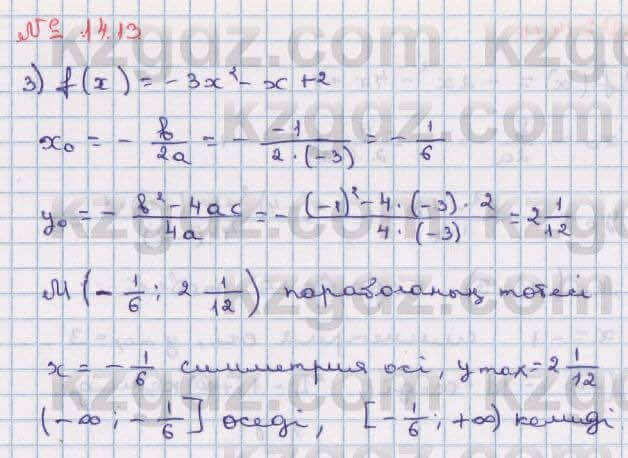 № 14.13
3) f(x) = -3x² - x + 2
x₀ = - b/2a = - -1/(2·(-3)) = - 1/6
y₀ = - (b² - 4ac)/4a = - ((-1)² - 4·(-3)·2)/(4·(-3)) = 2 1/12
M(-1/6; 2 1/12) параболаның төбесі
x = - 1/6 симметрия осі, y max = 2 1/12
(-∞; -1/6] өседі, [-1/6; +∞) кемиді
kzgdz.com